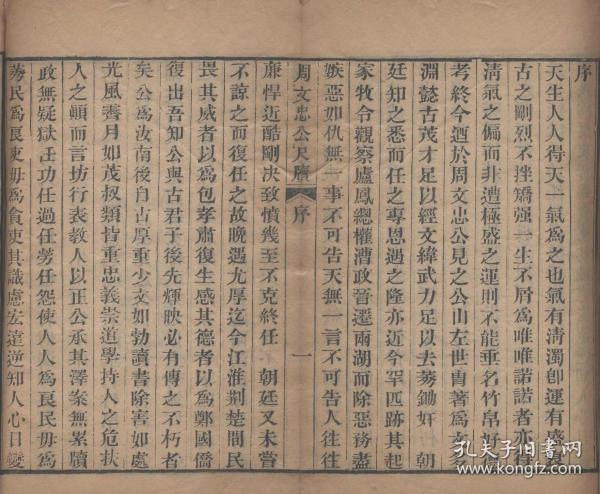 序
天生人人得天一氣爲之也氣有淸濁卽運有盛
古之剛烈不挫矯强一生不屑爲唯唯諾諾者亦得
淸氣之偏而非遭極盛之運則不能垂名竹帛好
考終今迺於周文忠公見之公山左世胄著爲
淵懿古茂才足以經文緯武力足以去莠鋤奸 朝
廷知之悉而任之專恩遇之隆亦近今罕匹跡其起
家牧令觀察廬鳳總權漕政晉遷兩湖而除惡務盡
嫉惡如仇無一事不可告天無一言不可告人往往
周文忠公尺牘 序 一
廉悍近酷剛決致憤幾至不克終任 朝廷又未嘗
不諒之而復任之故晚遇尤厚迄今江淮荆楚間民
畏其威者以爲包孝肅復生感其德者以爲鄭國僑
復出吾知公與古君子後先輝映必有傳之不朽者
矣公爲汝南後自占厚重少文如勃讀書除害如處
光風霽月如茂叔類皆重忠義崇道學持人之危扶
人之顚而言坊行表教人以正公承其澤案無累牘
政無疑獄任功任過任勞任怨使人人爲良民毋爲
莠民爲良吏毋爲貪吏其識慮宏遠逆知人心日變
孔夫子旧书网
www.kongfz.com